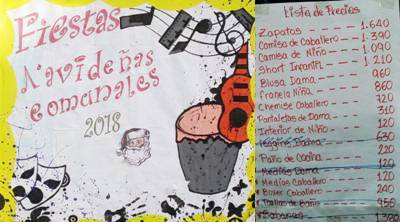 Fiestas
Navideñas
comunales
2018
Lista de Precios
Zapatos --- 1.640
Camisa de Caballero - 1.390
Camisa de Niño --- 1.090
Short Infantil --- 1.210
Blusa Dama --- 960
Franela Niño --- 860
Chemise Caballero --- 720
Pantaletas de Dama --- 310
Interior de Niño --- 120
Dama --- 630
Paño de Cocina --- 220
Medias Dama --- 120
Medias Caballero --- 120
Boxer Caballero --- 240
de Baño --- 956
Sabanas